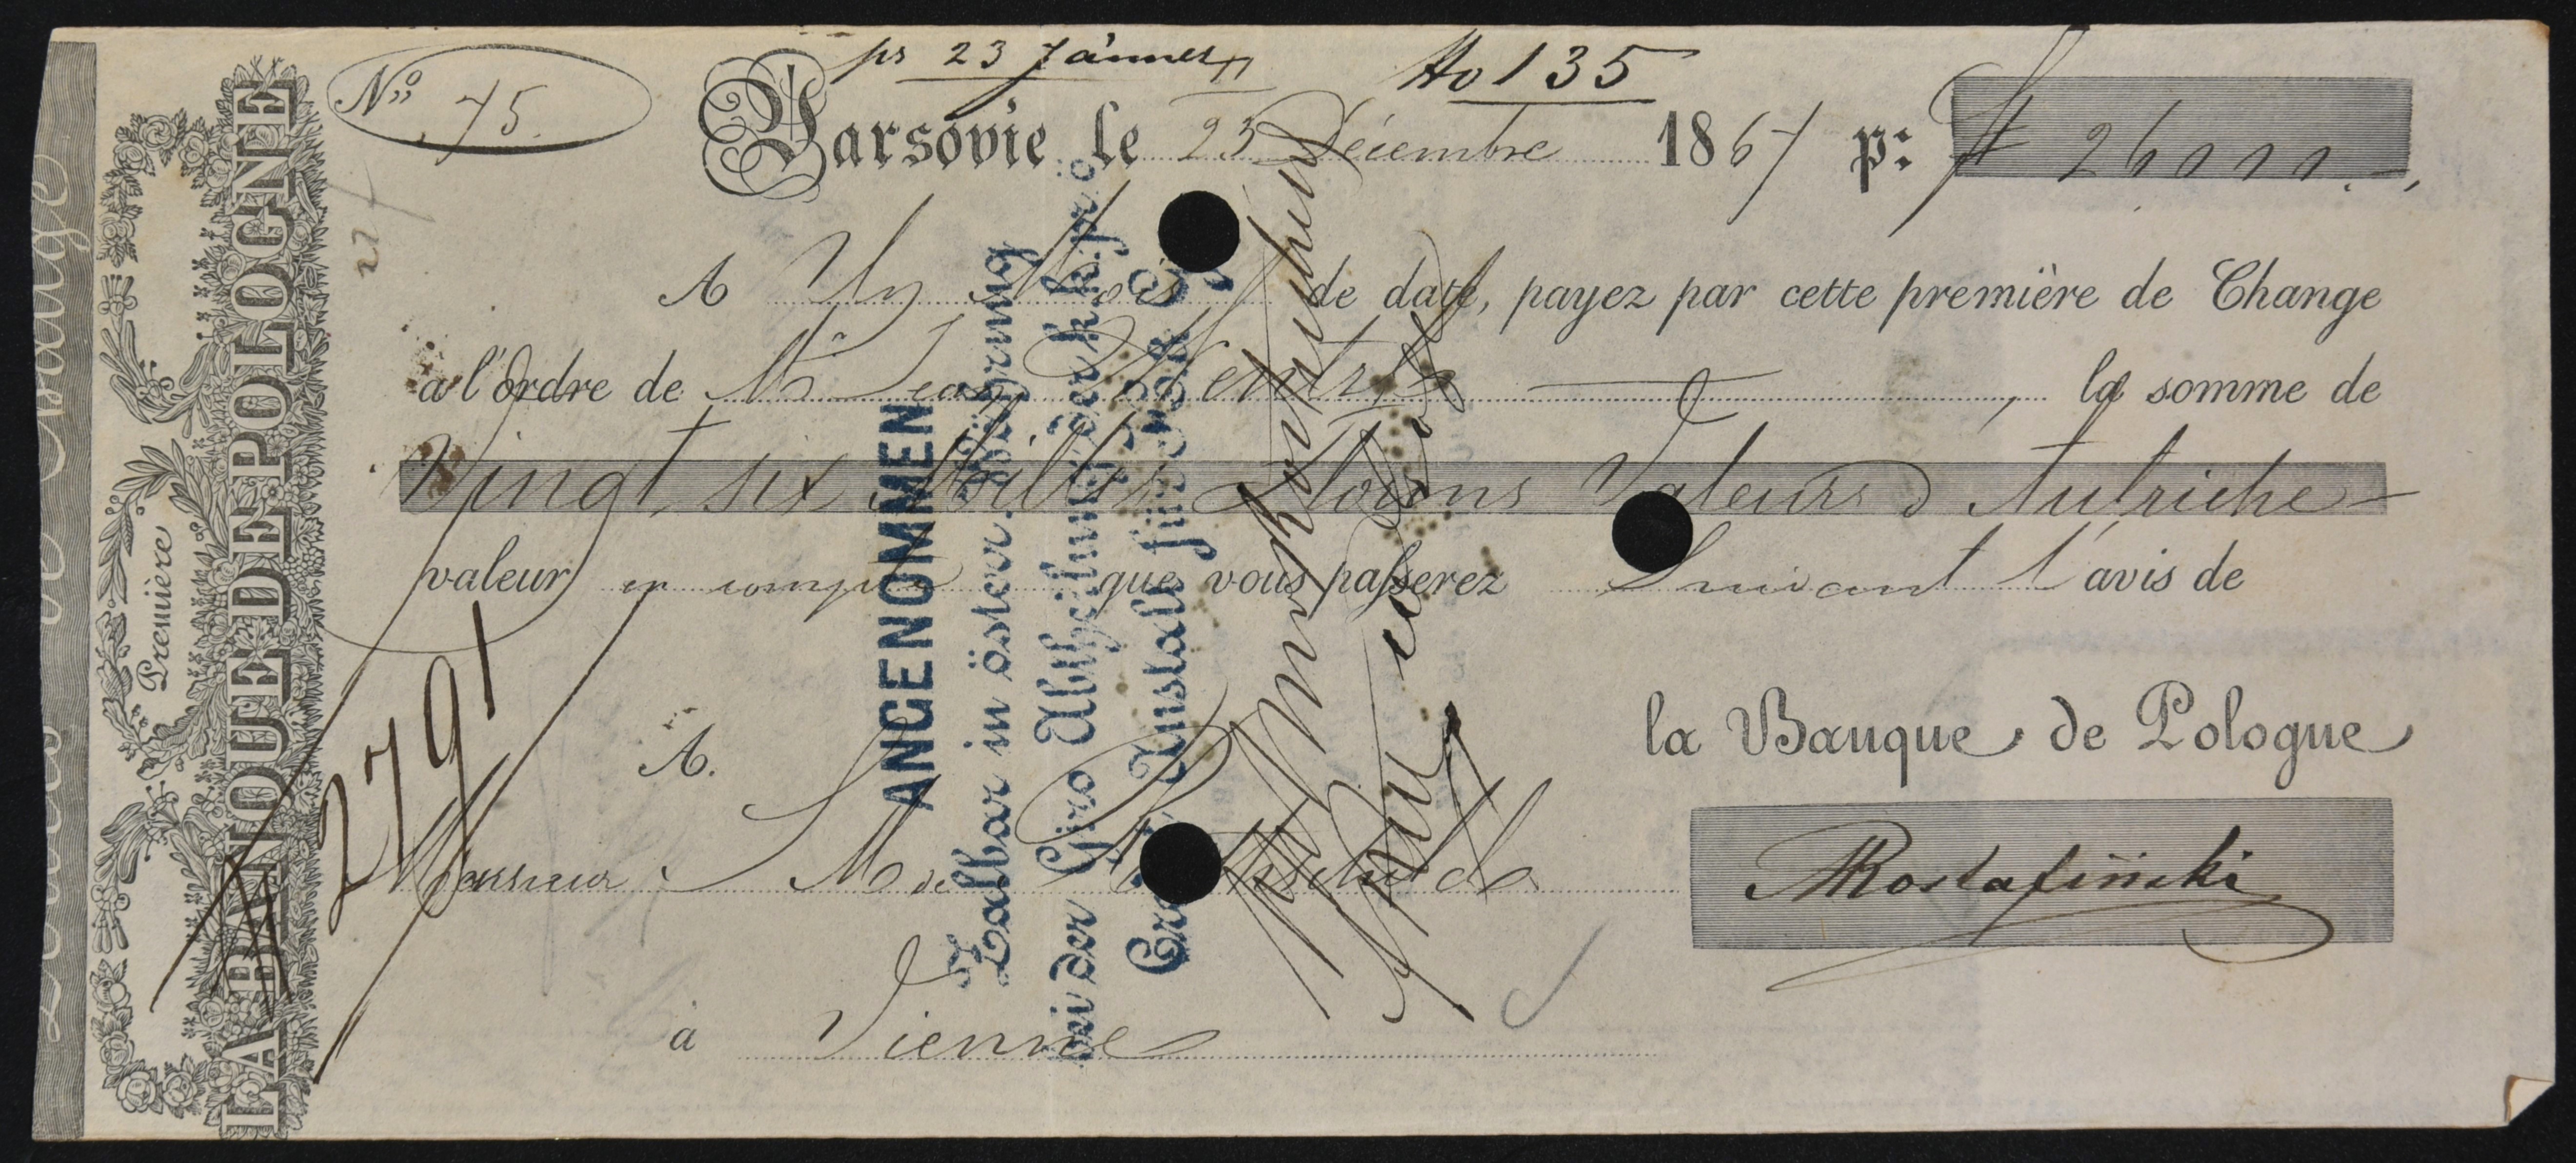 pr 23 Jänner
No 135
No 75.
Varsovie le 23 Décembre 1867 p: fl 26000.-,
A Un Mois de date, payez par cette première de Change
à l'Ordre de Mr Leon la somme de
Vingt six Milles Florins Valeurs d'Autriche
valeur en compte que vous passerez Suivant l'avis de
la Banque de Pologne
A.
Monsieur S M de Rothschild
à Vienne
Première
LA BANQUE DE POLOGNE
2791
ANGENOMMEN
Zalbar in österr. Währung
bei der Giro Abtheilung der k. k. priv.
Credit Anstalt für H. & G.